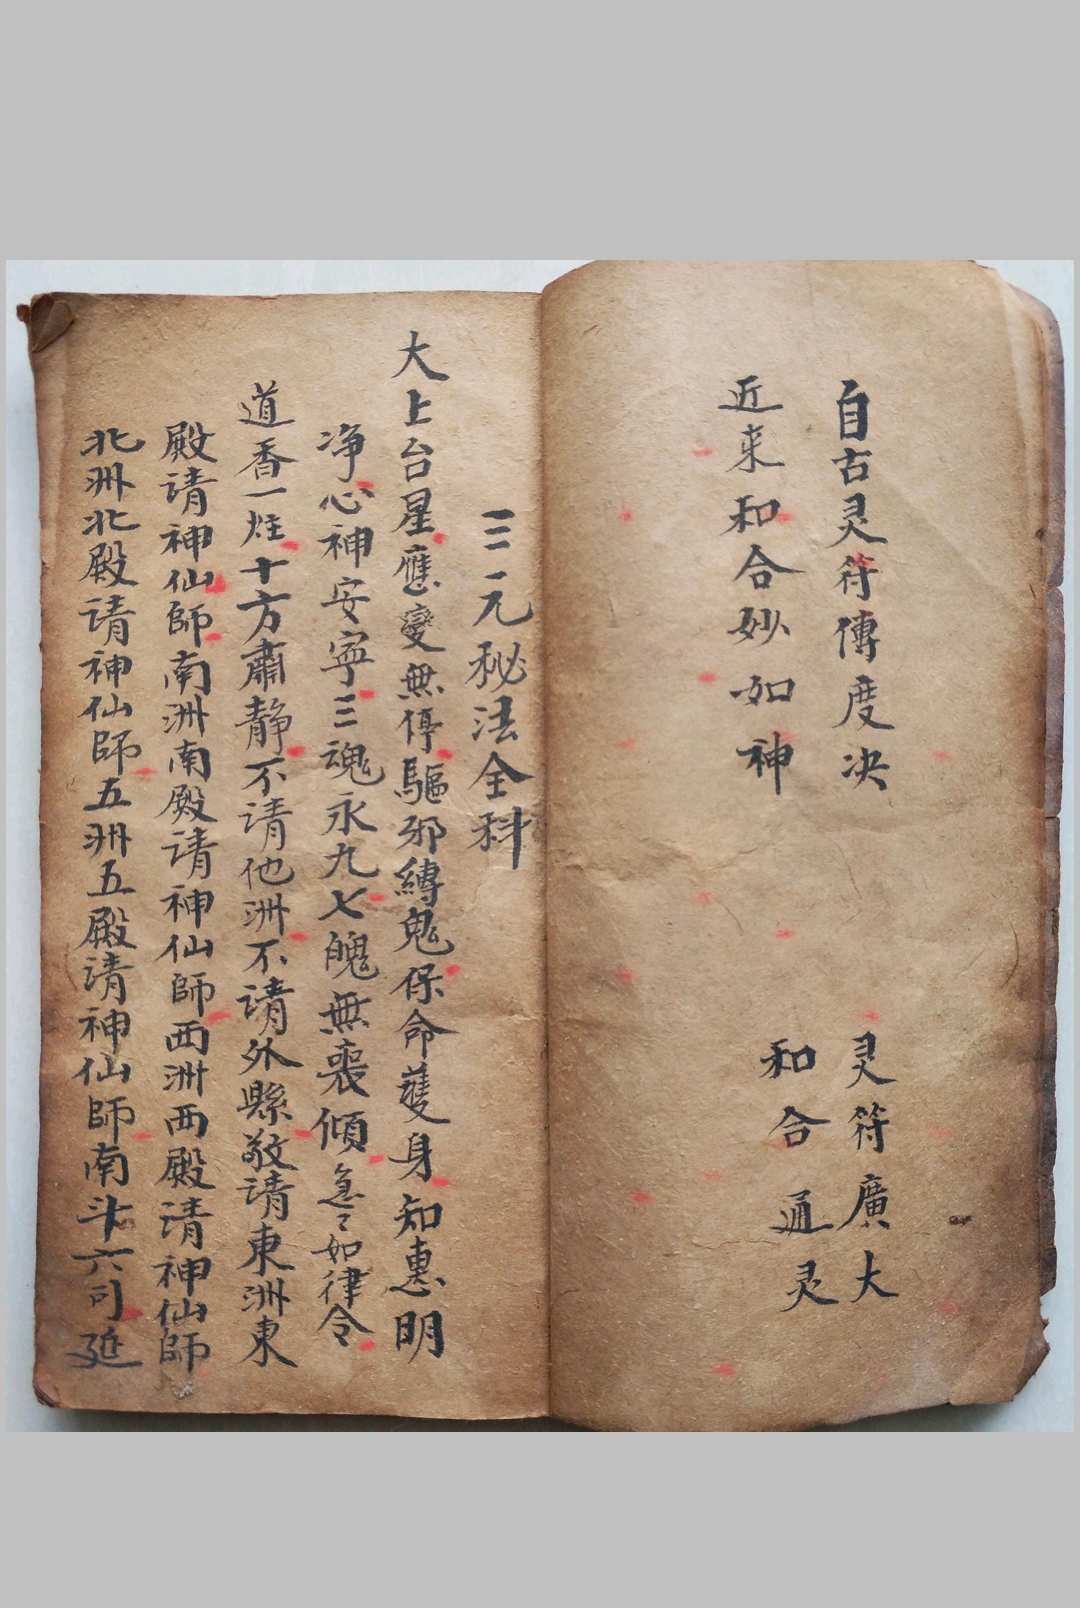 自古灵符傳度决
灵符廣大
近来和合妙如神
和合通灵
三元秘法全科
大上台星應變無停驅邪縛鬼保命護身知惠明
净心神安寧三魂永九七魄無喪傾急〻如律令
道香一炷十方肅静不请他洲不请外縣敬请東洲東
殿请神仙師南洲南殿请神仙師西洲西殿请神仙師
北洲北殿请神仙師五洲五殿请神仙師南斗六司延